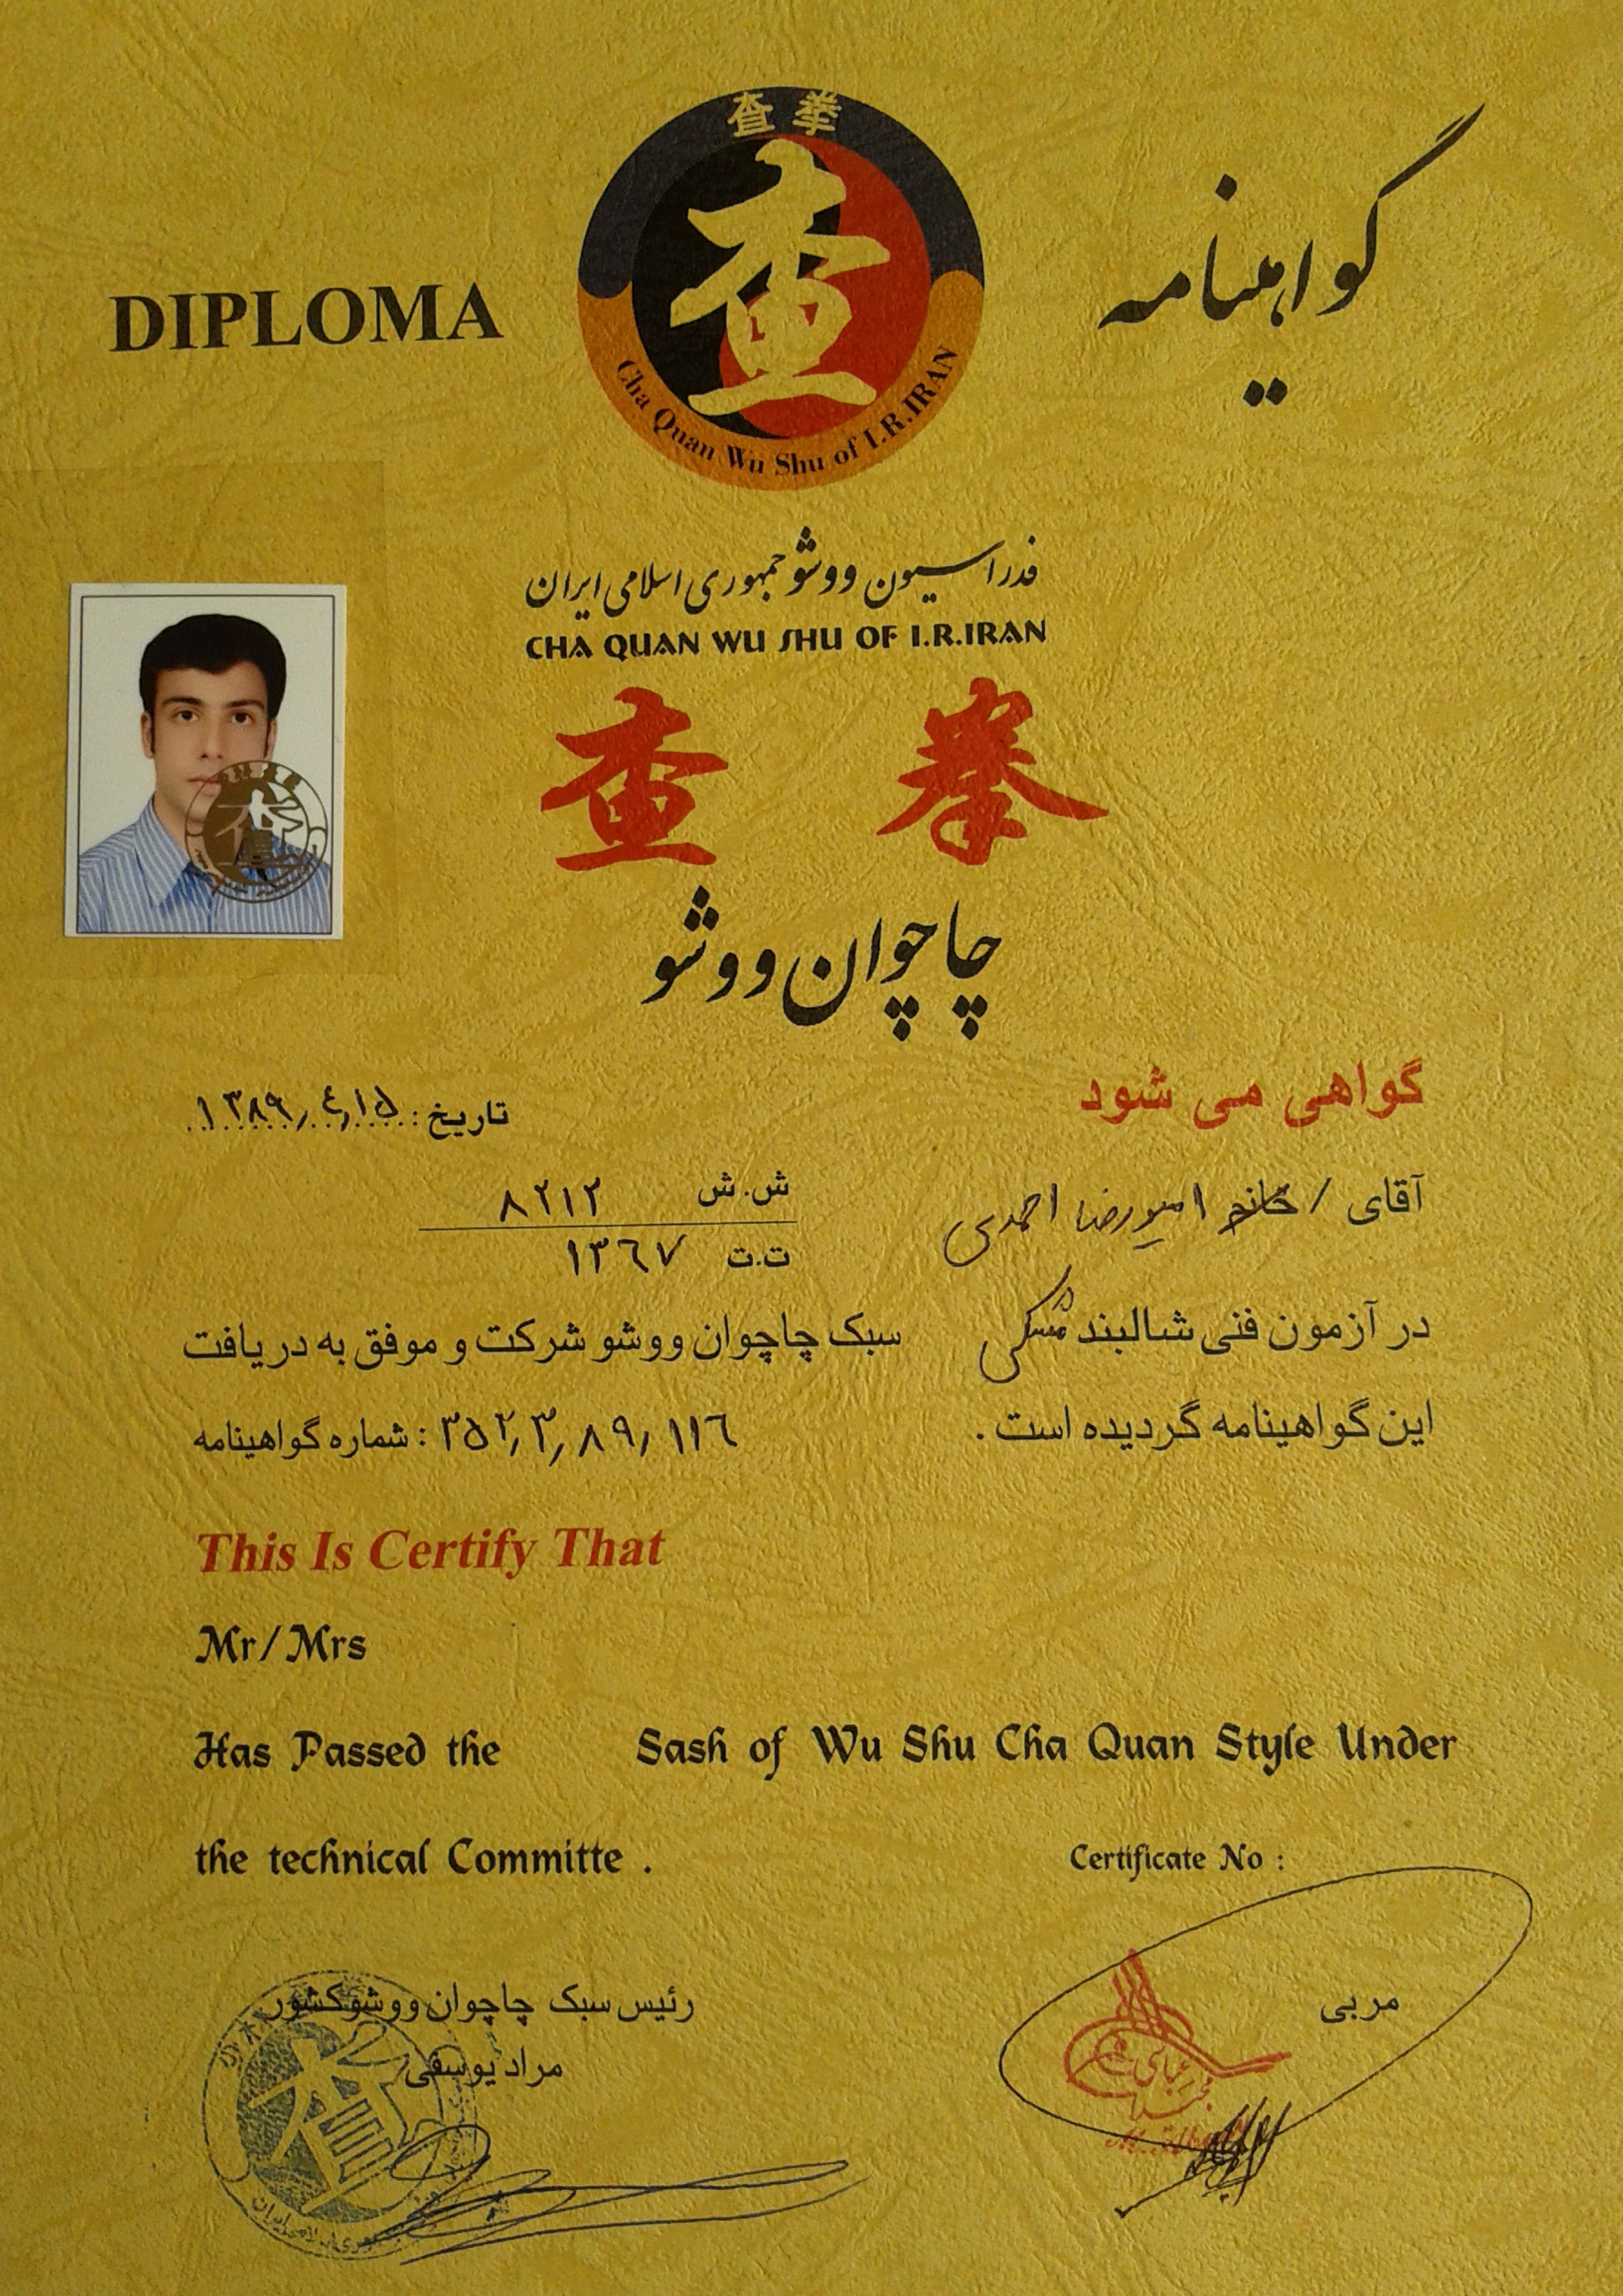 查拳
查
Cha Quan Wu Shu of I.R.IRAN
DIPLOMA
گواهینامه
فدراسیون ووشو جمهوری اسلامی ایران
CHA QUAN WU SHU OF I.R.IRAN
查 拳
چاچوان ووشو
گواهی می شود
تاریخ : ۱۳۸۹٫۴٫۱۵
آقای / خانم امیررضا احمدی
ش.ش ۸۲۱۲
ت.ت ۱۳۶۷
در آزمون فنی شالبند مشکی سبک چاچوان ووشو شرکت و موفق به دریافت
این گواهینامه گردیده است .
۳۵۲٫۳٫۸۹٫۱۱۶ : شماره گواهینامه
This Is Certify That
Mr/Mrs
Has Passed the Sash of Wu Shu Cha Quan Style Under
the technical Committe .
Certificate No :
مربی
عباسی
رئیس سبک چاچوان ووشو کشور
مراد یوسفی